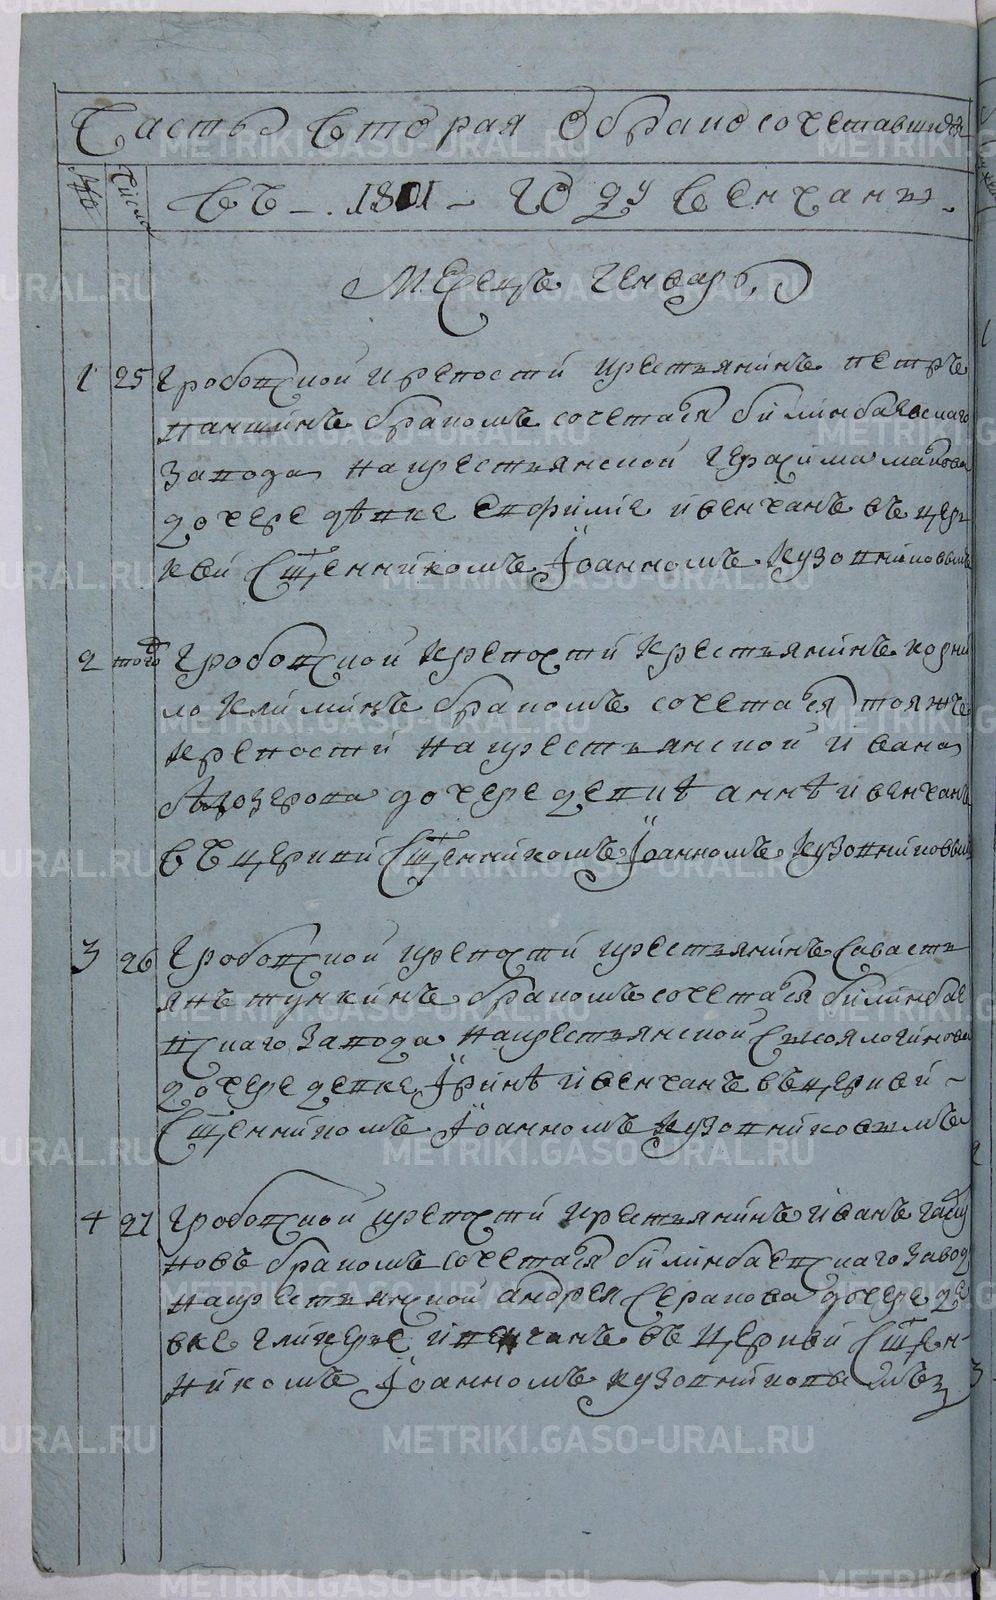 Часть вторая о бракосочетавшихся
№ Числа въ 1801 году венчаны.
Месецъ генварь,
1 25 Гробовской крепости крестьянинъ петръ
паншинъ бракомъ сочетался билинбаевскаго
завода на крестьянской герасима
дочере дѣвке Епфиміе и венчанъ въ цер
кви Сщенникомъ Іоанномъ Кузовниковымъ
2 того Гробовской крепости Крестьянинъ корни
ло Климинъ бракомъ сочетался тояжъ
крепости на крестьянской ивана
бѣлозерова дочере девкѣ аннѣ и венчанъ
въ церкви Сщенникомъ Іоанномъ Кузовниковым
3 26 Гробовской крепости крестьянинъ Савасть
янъ тункинъ бракомъ сочетался билинбае
вскаго завода на крестьянской Сысоя логинова
дочере девке Иринѣ и венчанъ въ церкви
Сщенникомъ Іоанномъ Кузовниковымъ
4 27 Гробовской крепости Крестьянинъ иванъ
новъ бракомъ сочетался билинбаевскаго завод
на крестьянской андрея Серапова дочере де
вке гликерье и венчанъ въ церкви Сщен
никомъ Іоанномъ кузовниковымъ
METRIKI.GASO-URAL.RU